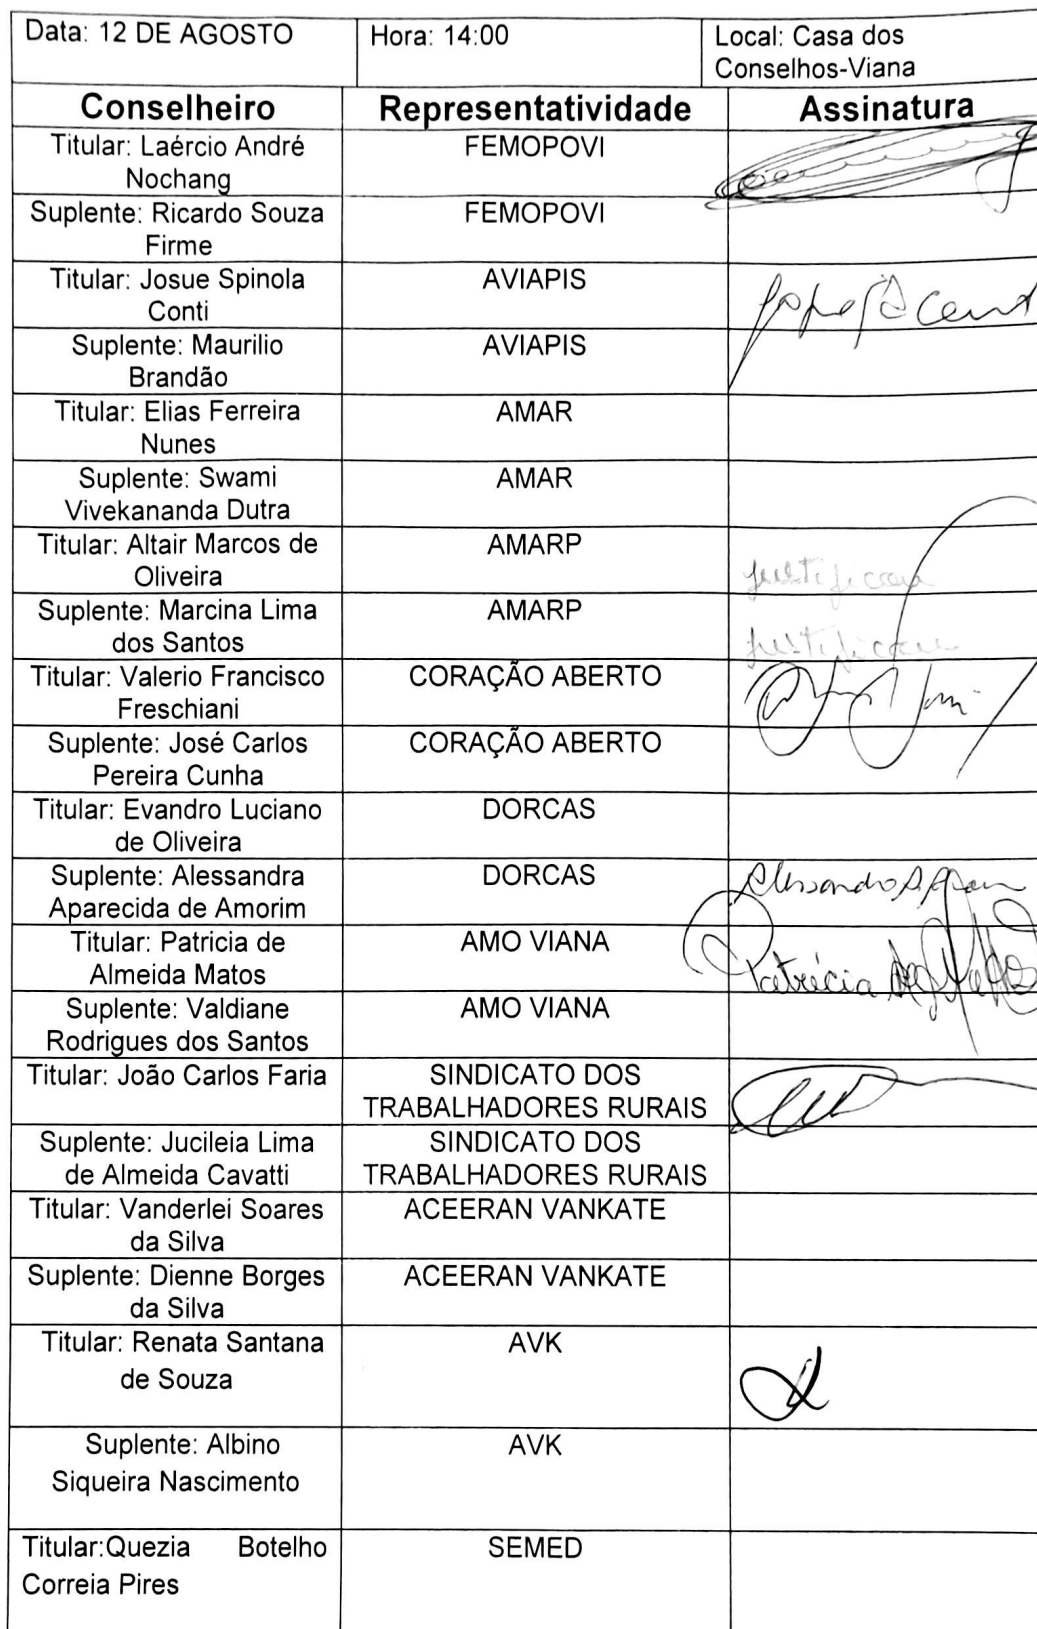 Data: 12 DE AGOSTO
Hora: 14:00
Local: Casa dos
Conselhos-Viana
Conselheiro
Representatividade
Assinatura
Titular: Laércio André
Nochang
FEMOPOVI
Suplente: Ricardo Souza
Firme
FEMOPOVI
Titular: Josue Spinola
Conti
AVIAPIS
Suplente: Maurilio
Brandão
AVIAPIS
Titular: Elias Ferreira
Nunes
AMAR
Suplente: Swami
Vivekananda Dutra
AMAR
Titular: Altair Marcos de
Oliveira
AMARP
Suplente: Marcina Lima
dos Santos
AMARP
Titular: Valerio Francisco
Freschiani
CORAÇÃO ABERTO
Suplente: José Carlos
Pereira Cunha
CORAÇÃO ABERTO
Titular: Evandro Luciano
de Oliveira
DORCAS
Suplente: Alessandra
Aparecida de Amorim
DORCAS
Titular: Patricia de
Almeida Matos
AMO VIANA
Patrícia
Suplente: Valdiane
Rodrigues dos Santos
AMO VIANA
Titular: João Carlos Faria
SINDICATO DOS
TRABALHADORES RURAIS
Suplente: Jucileia Lima
de Almeida Cavatti
SINDICATO DOS
TRABALHADORES RURAIS
Titular: Vanderlei Soares
da Silva
ACEERAN VANKATE
Suplente: Dienne Borges
da Silva
ACEERAN VANKATE
Titular: Renata Santana
de Souza
AVK
Suplente: Albino
Siqueira Nascimento
AVK
Titular:Quezia Botelho
Correia Pires
SEMED